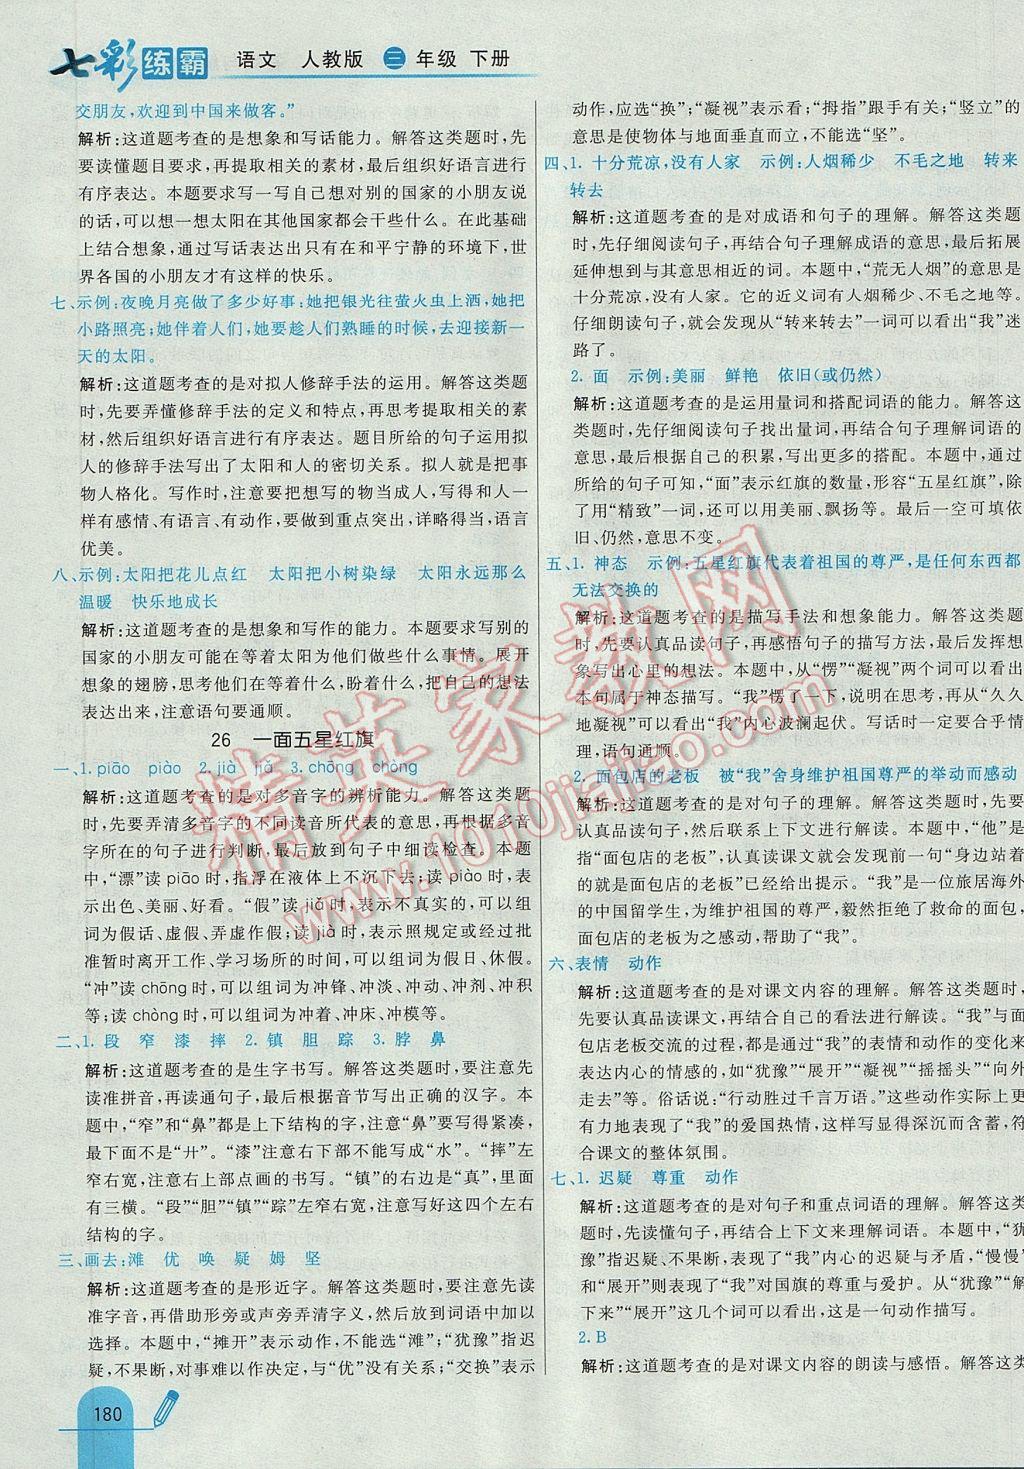 七彩练霸 语文 人教版 三年级 下册
交朋友,欢迎到中国来做客。”
解析:这道题考查的是想象和写话能力。解答这类题时,先
要读懂题目要求,再提取相关的素材,最后组织好语言进行
有序表达。本题要求写一写自己想对别的国家的小朋友说
的话,可以想一想太阳在其他国家都会干些什么。在此基础
上结合想象,通过写话表达出只有在和平宁静的环境下,世
界各国的小朋友才有这样的快乐。
七、示例:夜晚月亮做了多少好事:她把银光往萤火虫上洒,她把
小路照亮;她伴着人们,她要趁人们熟睡的时候,去迎接新一
天的太阳。
解析:这道题考查的是对拟人修辞手法的运用。解答这类题
时,先要弄懂修辞手法的定义和特点,再思考提取相关的素
材,然后组织好语言进行有序表达。题目所给的句子运用拟
人的修辞手法写出了太阳和人的密切关系。拟人就是把事
物人格化。写作时,注意要把想写的物当成人,写得和人一
样有感情、有语言、有动作,要做到重点突出,详略得当,语言
优美。
八、示例:太阳把花儿点红 太阳把小树染绿 太阳永远那么
温暖 快乐地成长
解析:这道题考查的是想象和写作的能力。本题要求写别的
国家的小朋友可能在等着太阳为他们做些什么事情。展开
想象的翅膀,思考他们在等着什么,盼着什么,把自己的想法
表达出来,注意语句要通顺。
26 一面五星红旗
一、1. piāo piào 2. jià jiǎ 3. chōng chòng
解析:这道题考查的是对多音字的辨析能力。解答这类题
时,先要弄清多音字的不同读音所代表的意思,再根据多音
字所在的句子进行判断,最后放到句子中细读检查。本题
中,“漂”读 piāo 时,指浮在液体上不沉下去;读 piào 时,表
示出色、美丽、好看。“假”读 jiǎ 时,表示不真实的,可以组
词为假话、虚假、弄虚作假;读 jià 时,表示照规定或经过批
准暂时离开工作、学习场所的时间,可以组词为假日、休假。
“冲”读 chōng 时,可以组词为冲锋、冲淡、冲动、冲剂、冲积
等;读 chòng 时,可以组词为冲着、冲床、冲模等。
二、1. 段 窄 漆 摔 2. 镇 胆 踪 3. 脖 鼻
解析:这道题考查的是生字书写。解答这类题时,要注意先
读准拼音,再读通句子,最后根据音节写出正确的汉字。其
中,“窄”和“鼻”都是上下结构的字,注意“鼻”要写得紧凑,
最下面不是“廾”。“漆”注意右下部不能写成“水”。“摔”左
窄右宽,注意右上部点画的书写。“镇”的右边是“真”,里面
有三横。“段”“胆”“镇”“踪”左窄右宽,注意写好这四个左右
结构的字。
三、画去:滩 优 唤 疑 姆 坚
解析:这道题考查的是形近字。解答这类题时,要注意先读
准字音,再借助形旁或声旁弄清字义,然后放到词语中加以
选择。本题中,“摊开”表示动作,不能选“滩”;“犹豫”指迟
疑,不果断,对事难以作决定,与“优”没有关系;“交换”表示
动作,应选“换”;“凝视”表示看;“拇指”跟手有关;“竖立”的
意思是使物体与地面垂直而立,不能选“坚”。
四、1. 十分荒凉,没有人家 示例:人烟稀少 不毛之地 转来
转去
解析:这道题考查的是对成语和句子的理解。解答这类题
时,先仔细阅读句子,再结合句子理解成语的意思,最后拓展
延伸想到与其意思相近的词。本题中,“荒无人烟”的意思是
十分荒凉,没有人家。它的近义词有人烟稀少、不毛之地等。
仔细朗读句子,就会发现从“转来转去”一词可以看出“我”迷
路了。
2. 面 示例:美丽 鲜艳 依旧(或仍然)
解析:这道题考查的是运用量词和搭配词语的能力。解答这
类题时,先仔细阅读句子找出量词,再结合句子理解词语的
意思,最后根据自己的积累,写出更多的搭配。本题中,通过
所给的句子可知,“面”表示红旗的数量,形容“五星红旗”,除
了用“精致”一词,还可以用美丽、飘扬等。最后一空可填依
旧、仍然,意思不变。
五、1. 神态 示例:五星红旗代表着祖国的尊严,是任何东西都
无法交换的
解析:这道题考查的是描写手法和想象能力。解答这类题
时,先要认真品读句子,再感悟句子的描写方法,最后发挥想
象写出心里的想法。本题中,从“愣”“凝视”两个词可以看出
本句属于神态描写。“我”愣了一下,说明在思考,再从“久久
地凝视”可以看出“我”内心波澜起伏。写话时一定要合乎情
理,语句通顺。
2. 面包店的老板 被“我”舍身维护祖国尊严的举动而感动
解析:这道题考查的是对句子的理解。解答这类题时,先要
认真品读句子,然后联系上下文进行解读。本题中,“他”是
指“面包店的老板”,认真读课文就会发现前一句“身边站着
的就是面包店的老板”已经给出提示。“我”是一位旅居海外
的中国留学生,为维护祖国的尊严,毅然拒绝了救命的面包,
面包店的老板为之感动,帮助了“我”。
六、表情 动作
解析:这道题考查的是对课文内容的理解。解答这类题时,
先要认真品读课文,再结合自己的看法进行解读。“我”与面
包店老板交流的过程,都是通过“我”的表情和动作的变化来
表达内心的情感的,如“犹豫”“展开”“凝视”“摇摇头”“向外
走去”等。俗话说:“行动胜过千言万语。”这些动作实际上更
有力地表现了“我”的爱国热情,这样写显得深沉而含蓄,符
合课文的整体氛围。
七、1. 迟疑 尊重 动作
解析:这道题考查的是对句子和重点词语的理解。解答这类
题时,先读懂句子,再结合上下文来理解词语。本题中,“犹
豫”指迟疑、不果断,表现了“我”内心的迟疑与矛盾,“慢慢”
和“展开”则表现了“我”对国旗的尊重与爱护。从“犹豫”“解
下来”“展开”这几个词可以看出,这是一句动作描写。
2. B
解析:这道题考查的是对课文内容的朗读与感悟。解答这类
180
精英家教网
www.1010jiajiao.com